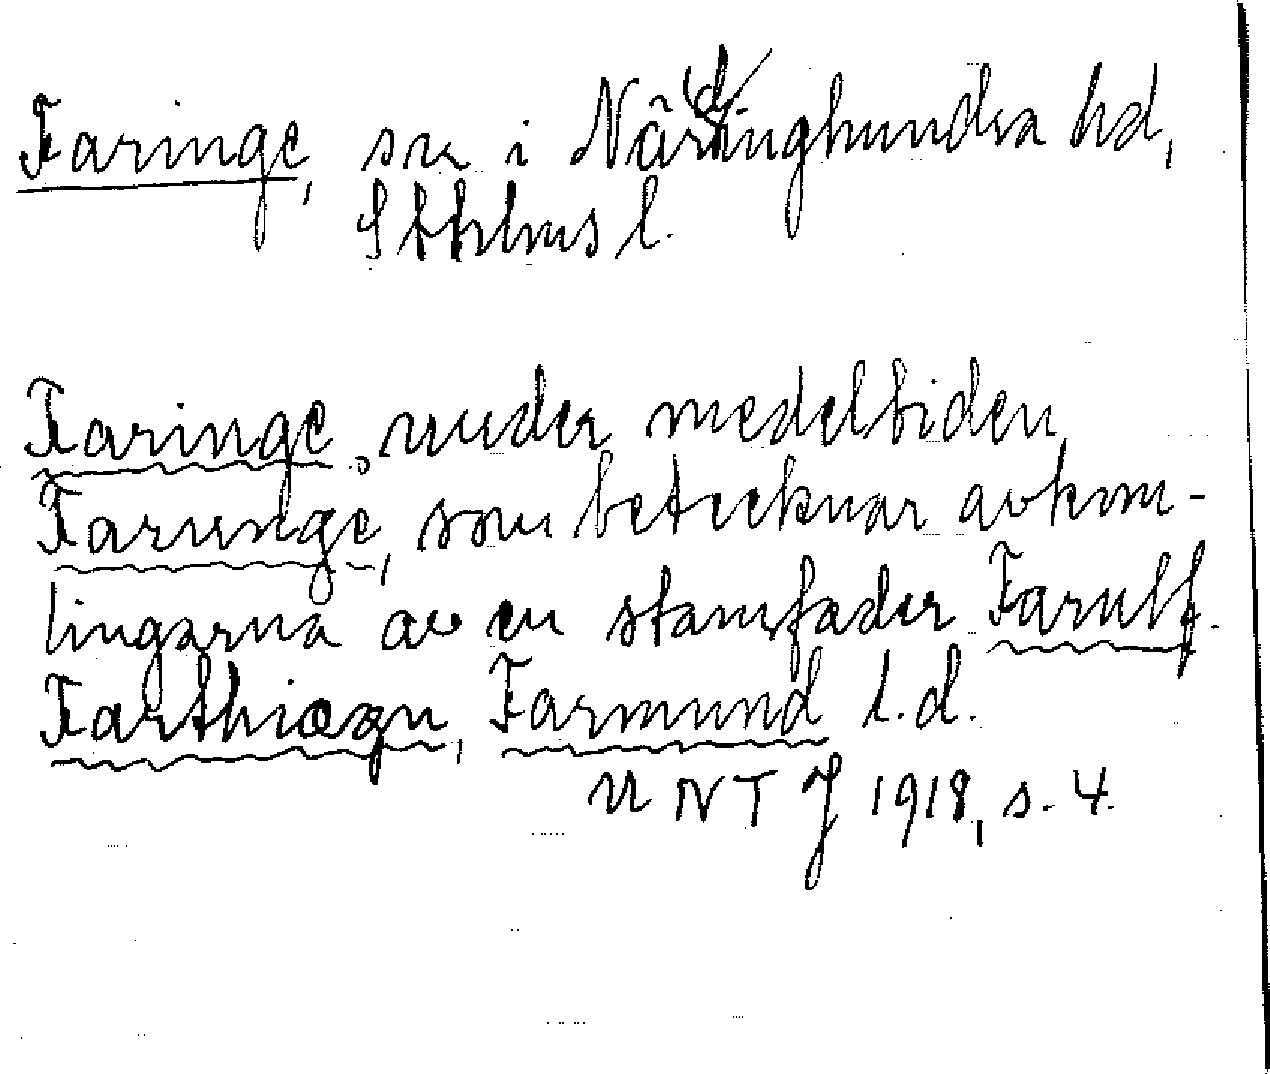 Faringe, sn i Närdinghundra hd,
Sthlms l.
Faringe, under medeltiden
Farunge, som betecknar avkom-
lingarna av en stamfader Farulf,
Farthiægn, Farmund l. d.
UNT J 1918, s. 4.